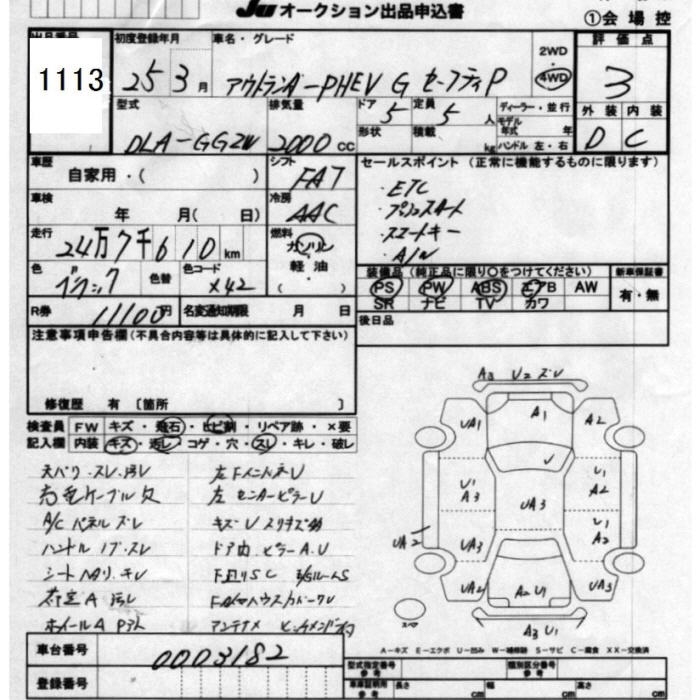 JU オークション出品申込書
①会場控
出品番号 初度登録年月 車名・グレード 2WD 4WD 評価点
1113 25 3月 アウトランダーPHEV G セーフティP 3
型式 排気量 ドア 5 定員 5人 ディーラー・並行 外装 内装
DLA-GG2W 2000cc 形状 積載 kg モデル年式 年 ハンドル 左・右 D C
車歴 自家用・( ) シフト FAT セールスポイント (正常に機能するものに限ります)
車検 年 月( 日) 冷房 AAC
・ETC
・プッシュスタート
・スマートキー
・A/W
走行 24万7千610km 燃料 ガソリン・軽油・( )
色 ブラック 色替 色コード X42
装備品(純正品に限り○をつけてください) 新車保証書
PS PW ABS エアB AW 有・無
SR ナビ TV カワ
R券 11100円 名変通知期限 月 日 後日品
注意事項申告欄(不具合内容等は具体的に記入して下さい)
修復歴 有 〔箇所 〕
検査員記入欄 FW キズ・飛石・ヒビ割・リペア跡・×要
内装 キズ・汚レ・コゲ・穴・スレ・キレ・破レ
天バリ スレ、汚レ
充電ケーブル欠
A/C パネル ズレ
左 センターピラーU
ハンドル
キズ U
ドア内 ピラー A.U
ホイールA
アンテナ
A3 U2 ズレ
UA1 A1 A2
U1 A3 U1 A2
UA3
UA2 UA3 U1 A2
UA2 A2 U1 UA3
A3 U1
A-キズ E-エクボ U-凹み W-補修跡 S-サビ C-腐食 XX-交換済
車台番号 0003182
登録番号
型式指定番号 参考 類別区分番号 参考
車庫証明用 参考 長さ cm 幅 cm 高さ cm